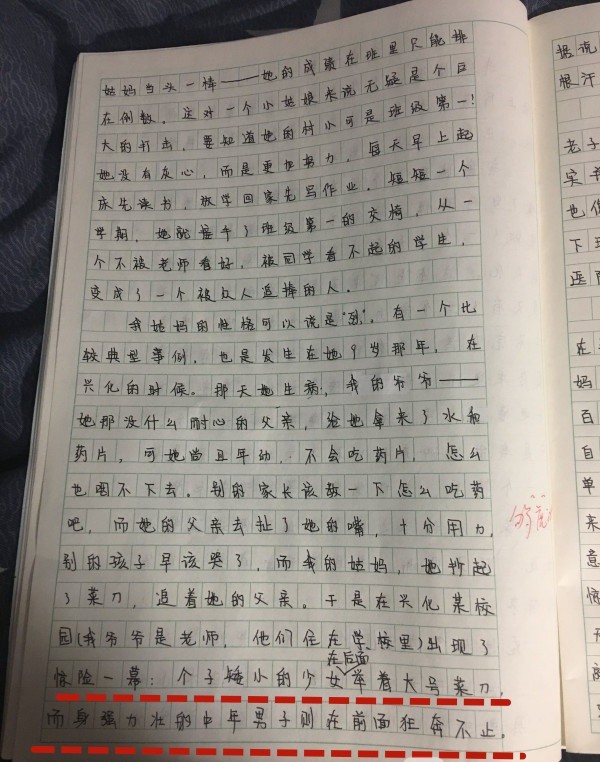 姑妈当头一棒——她的成绩在班里只能排
在倒数。这对一个小姑娘来说无疑是个巨
大的打击，要知道她的村小可是班级第一！
她没有灰心，而是更加努力，每天早上起
床先读书，放学回家先写作业，短短一个
学期，她就坐牢了班级第一的交椅，从一
个不被老师看好，被同学看不起的学生，
变成了一个被众人追捧的人。
我姑妈的性格可以说是"烈"，有一个比
较典型事例，也是发生在她9岁那年，在
兴化的时候。那天她生病，我的爷爷——
她那没什么耐心的父亲，给她拿来了水和
药片，可她尚且年幼，不会吃药片，怎么
也咽不下去。别的家长该教一下怎么吃药
吧，而她的父亲去扯了她的嘴，十分用力，
别的孩子早该哭了，而我的姑妈，她抄起
了菜刀，追着她的父亲。于是在兴化某校
园(我爷爷是老师，他们住在学校里)出现了
惊险一幕：个子矮小的少女在后面举着大号菜刀，
而身强力壮的中年男子则在前面狂奔不止。
据说
恨汗
老子
实
也
下
医
在
妈
百
自
单
来
意
惊